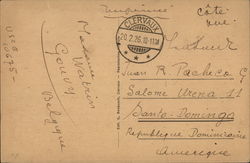 Imprimé
côté
vue.
CLERVAUX
20.2.26.10-11M
Juan R. Pacheco G
Salome Urena 11
Santo-Domingo
Republique Dominicaine
Amerique
Madame
Gouvy
Belgique